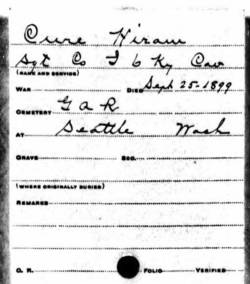 Cure Hiram
Sgt Co I 6 Ky Cav
(NAME AND SERVICE)
WAR DIED Sept 25-1899
CEMETERY G A R
AT Seattle Wash
GRAVE SEC.
(WHERE ORIGINALLY BURIED)
REMARKS
O. R. FOLIO VERIFIED